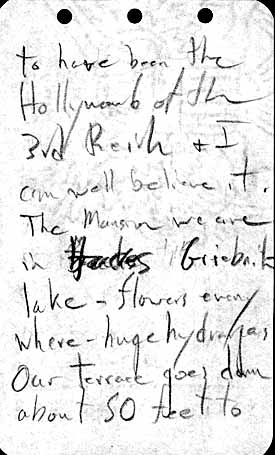 to have been the
Hollywood of the
3rd Reich & I
can well believe it.
The Mansion we are
in Griebnitz
lake - flowers every
where - huge hydrangeas
Our terrace goes down
about 50 feet to